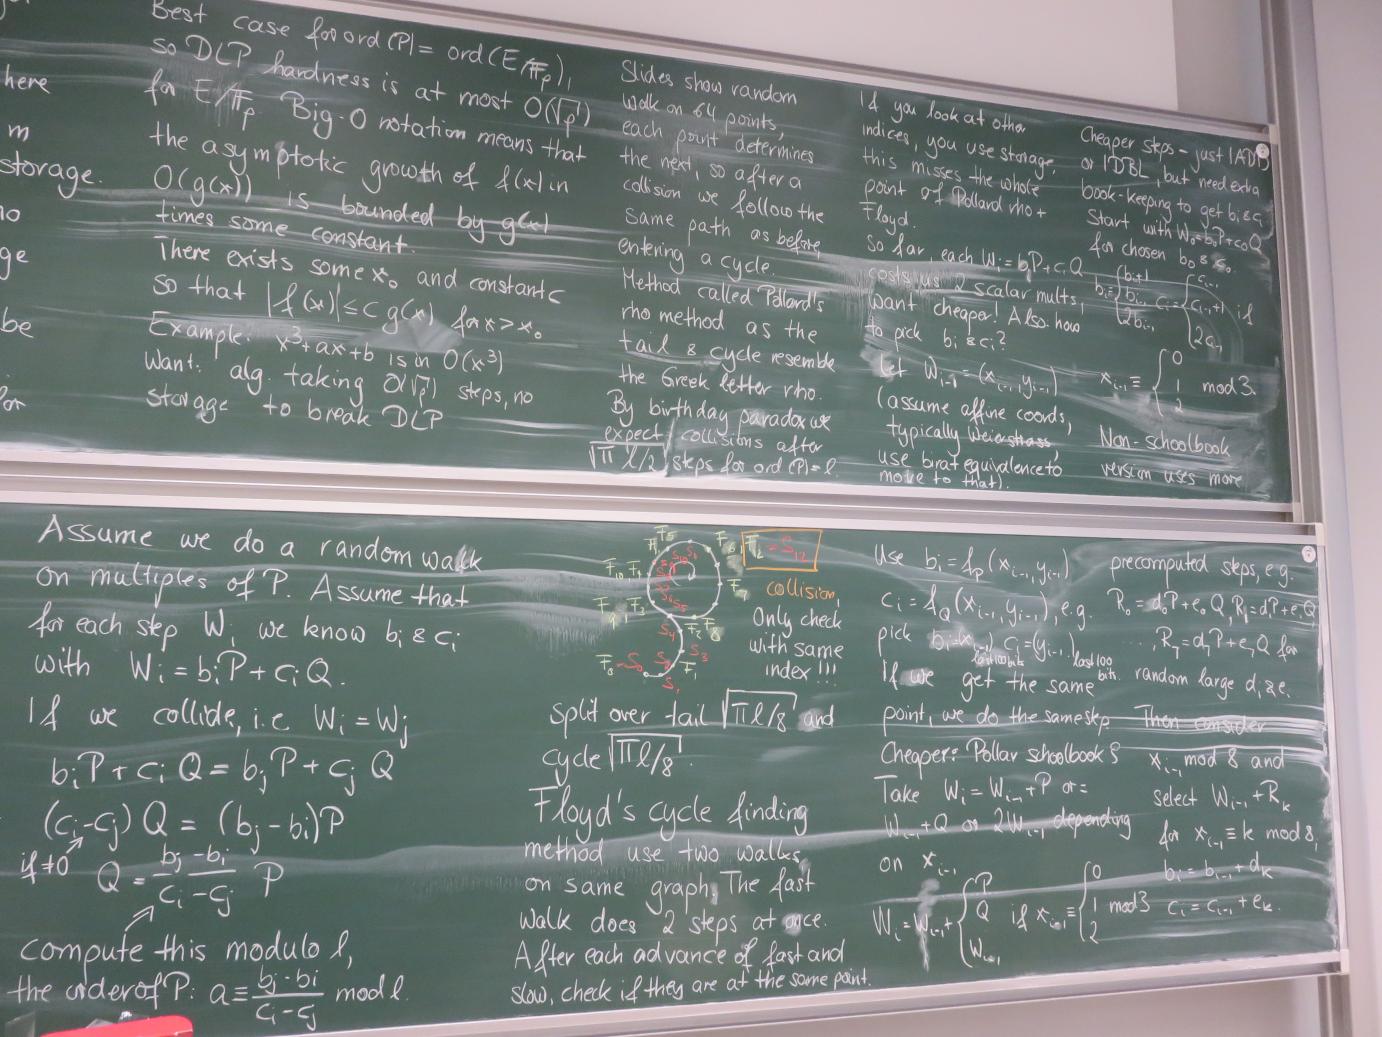 here
m
storage.
no
ge
be
for
Best case for ord(P) = ord(E/𝔽p),
so DLP hardness is at most O(√p)
for E/𝔽p. Big-O notation means that
the asymptotic growth of f(x) in
O(g(x)) is bounded by g(x)
times some constant.
There exists some x₀ and constant c
so that |f(x)| ≤ c g(x) for x > x₀
Example: x³+ax+b is in O(x³)
Want: alg. taking O(√p) steps, no
storage to break DLP
Slides show random
walk on 64 points,
each point determines
the next, so after a
collision we follow the
same path as before
entering a cycle.
Method called Pollard's
rho method as the
tail & cycle resemble
the Greek letter rho.
By birthday paradox we
expect collisions after
√(π l/2) steps for ord(P)=l.
If you look at other
indices, you use storage,
this misses the whole
point of Pollard rho +
Floyd.
So far, each Wᵢ = bᵢP + cᵢQ
costs us 2 scalar mults,
want cheaper! Also: how
to pick bᵢ & cᵢ?
Let Wᵢ₋₁ = (xᵢ₋₁, yᵢ₋₁)
(assume affine coords,
typically Weierstrass,
use birat equivalence to
move to that).
Cheaper steps – just 1ADD
or 1DBL, but need extra
book-keeping to get bᵢ & cᵢ
Start with W₀ = b₀P + c₀Q
for chosen b₀ & c₀.
bᵢ = { bᵢ₋₁+1 bᵢ₋₁ 2bᵢ₋₁ cᵢ = { cᵢ₋₁ cᵢ₋₁+1 2cᵢ₋₁ if
xᵢ₋₁ ≡ { 0 1 2 mod 3.
Non-schoolbook
version uses more
Assume we do a random walk
on multiples of P. Assume that
for each step Wᵢ we know bᵢ & cᵢ
with Wᵢ = bᵢP + cᵢQ.
If we collide, i.e. Wᵢ = Wⱼ
bᵢP + cᵢQ = bⱼP + cⱼQ
(cᵢ-cⱼ)Q = (bⱼ-bᵢ)P
if ≠0 Q = (bⱼ-bᵢ)/(cᵢ-cⱼ) P
compute this modulo l,
the order of P: a ≡ (bⱼ-bᵢ)/(cᵢ-cⱼ) mod l.
F₆ = S₁₂
collision
Only check
with same
index!!!
F₀ = S₀
S₁
F₁
S₂
S₃
S₄
F₂
split over tail √(πl/8) and
cycle √(πl/8).
Floyd's cycle finding
method use two walks
on same graph. The fast
walk does 2 steps at once.
After each advance of fast and
slow, check if they are at the same point.
Use bᵢ = f_P(xᵢ₋₁, yᵢ₋₁)
cᵢ = f_Q(xᵢ₋₁, yᵢ₋₁), e.g.
pick bᵢ=(xᵢ₋₁) last 100 bits cᵢ=(yᵢ₋₁) last 100 bits.
If we get the same
point, we do the same step
Cheaper: Pollar schoolbook
Take Wᵢ = Wᵢ₋₁+P or
Wᵢ₋₁+Q or 2Wᵢ₋₁ depending
on xᵢ₋₁
Wᵢ = Wᵢ₋₁+ { P Q Wᵢ₋₁ if xᵢ₋₁ ≡ { 0 1 2 mod 3
precomputed steps, e.g.
R₀ = d₀P+e₀Q, R₁=d₁P+e₁Q
.., R₇=d₇P+e₇Q for
random large dᵢ & eᵢ
Then consider
xᵢ₋₁ mod 8 and
select Wᵢ₋₁ + Rₖ
for xᵢ₋₁ ≡ k mod 8,
bᵢ = bᵢ₋₁ + dₖ
cᵢ = cᵢ₋₁ + eₖ.